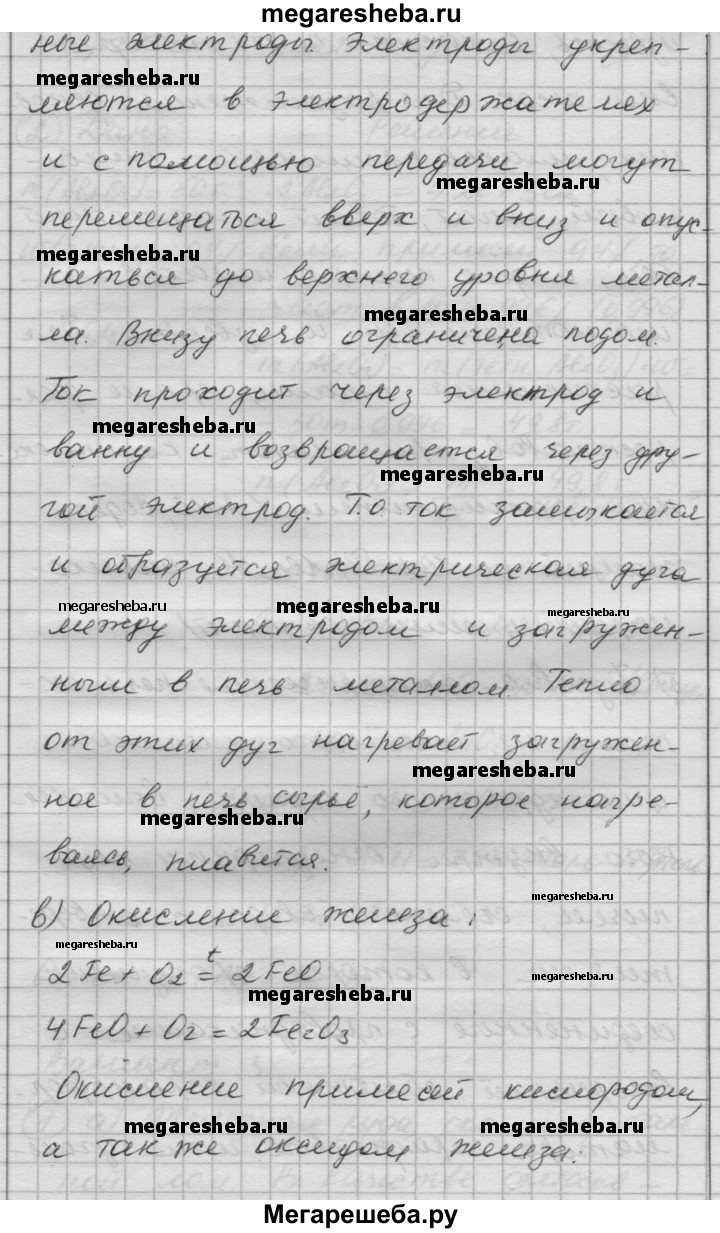 megaresheba.ru
ные электроды. Электроды укреп-
megaresheba.ru
ляются в электродержателях
и с помощью передачи могут
megaresheba.ru
перемещаться вверх и вниз и опус-
megaresheba.ru
каться до верхнего уровня метал-
megaresheba.ru
ла. Внизу печь ограничена подом.
Ток проходит через электрод и
megaresheba.ru
ванну и возвращается через дру-
megaresheba.ru
гой электрод. Т.о. ток замыкается
и образуется электрическая дуга
megaresheba.ru megaresheba.ru megaresheba.ru
между электродом и загружен-
ным в печь металлом. Тепло
от этих дуг нагревает загружен-
megaresheba.ru
ное в печь сырье, которое нагре-
megaresheba.ru
ваясь, плавится.
megaresheba.ru
в) Окисление железа:
megaresheba.ru
2Fe + O2 t= 2FeO
megaresheba.ru
megaresheba.ru
4FeO + O2 = 2Fe2O3
Окисление примесей кислородом,
megaresheba.ru megaresheba.ru
а так же оксидом железа:
Мегарешеба.ру